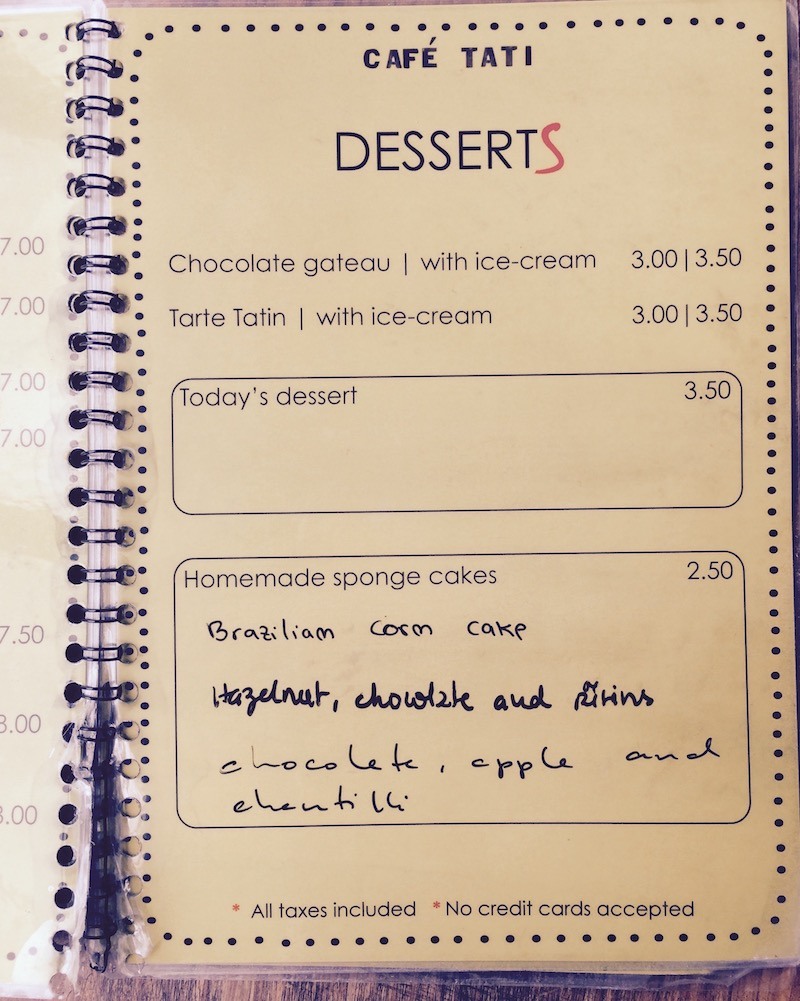 CAFÉ TATI
DESSERTS
Chocolate gateau | with ice-cream 3.00|3.50
Tarte Tatin | with ice-cream 3.00|3.50
Today's dessert 3.50
Homemade sponge cakes 2.50
Braziliam corm cake
Hazelnut, chocolate and
chocolate, apple and
chantilli
* All taxes included * No credit cards accepted
7.00
7.00
7.00
7.00
7.50
3.00
3.00